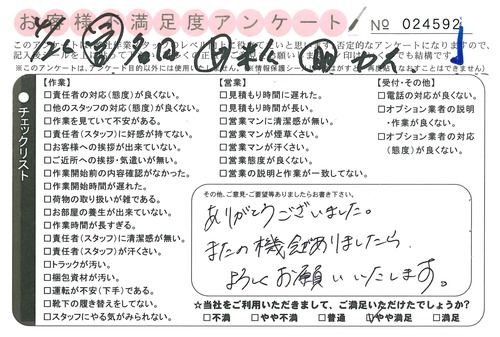 お客様不満足度アンケート
№ 024592
※このアンケートは、アンケート目的以外には使用いたしません。
チェックリスト
【作業】
□責任者の対応(態度)が良くない。
□他のスタッフの対応(態度)が良くない。
□作業を見ていて不安がある。
□責任者(スタッフ)に好感が持てない。
□お客様への挨拶が出来ていない。
□ご近所への挨拶・気遣いが無い。
□作業開始前の内容確認がなかった。
□作業開始時間が遅れた。
□荷物の取り扱いが雑である。
□お部屋の養生が出来ていない。
□作業時間が長すぎる。
□責任者(スタッフ)に清潔感が無い。
□責任者(スタッフ)が汗くさい。
□トラックが汚い。
□梱包資材が汚い。
□運転が不安(下手)である。
□靴下の履き替えをしてない。
□スタッフにやる気がみられない。
【営業】
□見積もり時間に遅れた。
□見積もり時間が長い。
□営業マンに清潔感が無い。
□営業マンが煙草くさい。
□営業マンが汗くさい。
□営業態度が良くない。
□営業の説明と作業が一致してない。
【受付・その他】
□電話の対応が良くない。
□オプション業者の説明・作業が良くない。
□オプション業者の対応(態度)が良くない。
その他、ご意見・ご要望等ありましたらお書き下さい。
ありがとうございました。
またの機会ありましたら
よろしくお願いいたします。
☆当社をご利用いただきまして、ご満足いただけたでしょうか?
□不満 □やや不満 □普通 □やや満足 □満足